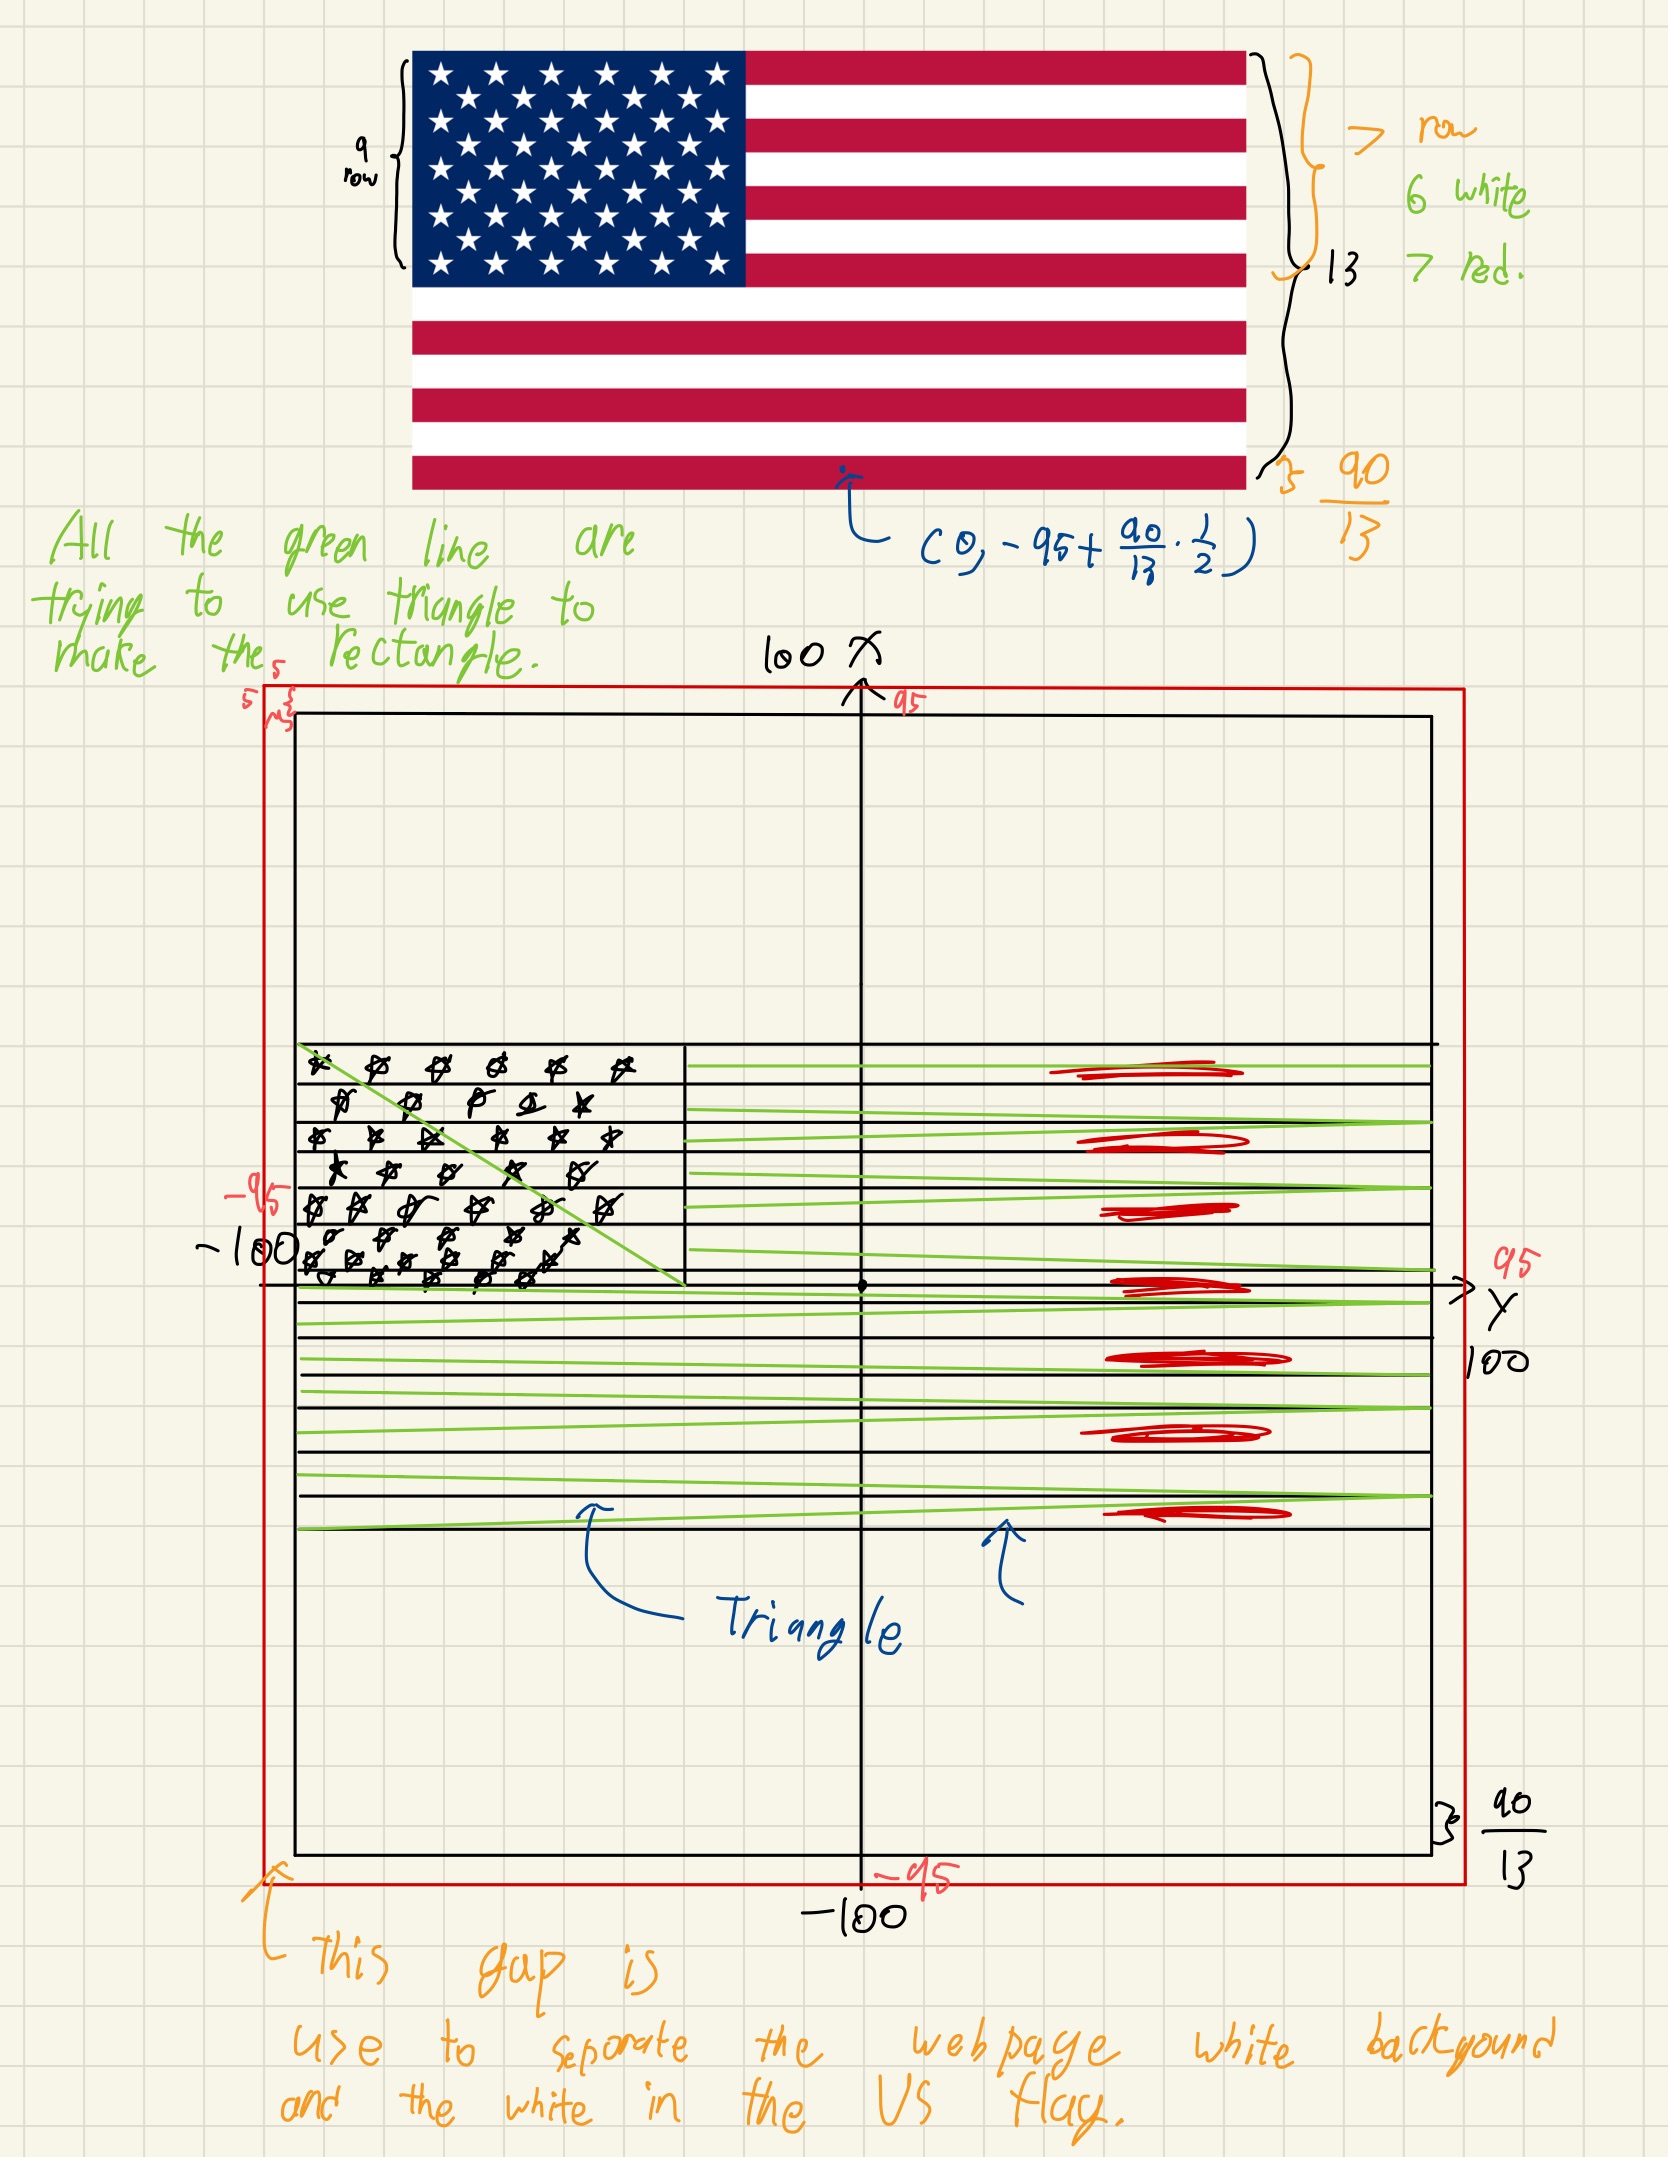 9
row
7 row
6 white
13 7 red.
90
13
(0, -95+ 90/13 · 1/2 )
All the green line are
trying to use triangle to
make the rectangle.
5
5
100 X
95
-95
-100
95
Y
100
Triangle
90
13
-95
-100
This gap is
use to seporate the webpage white backgound
and the white in the US flag.